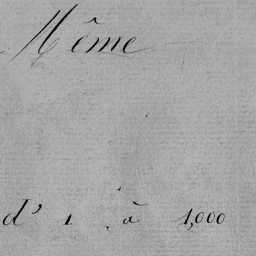 Même
d' 1 à 1,000